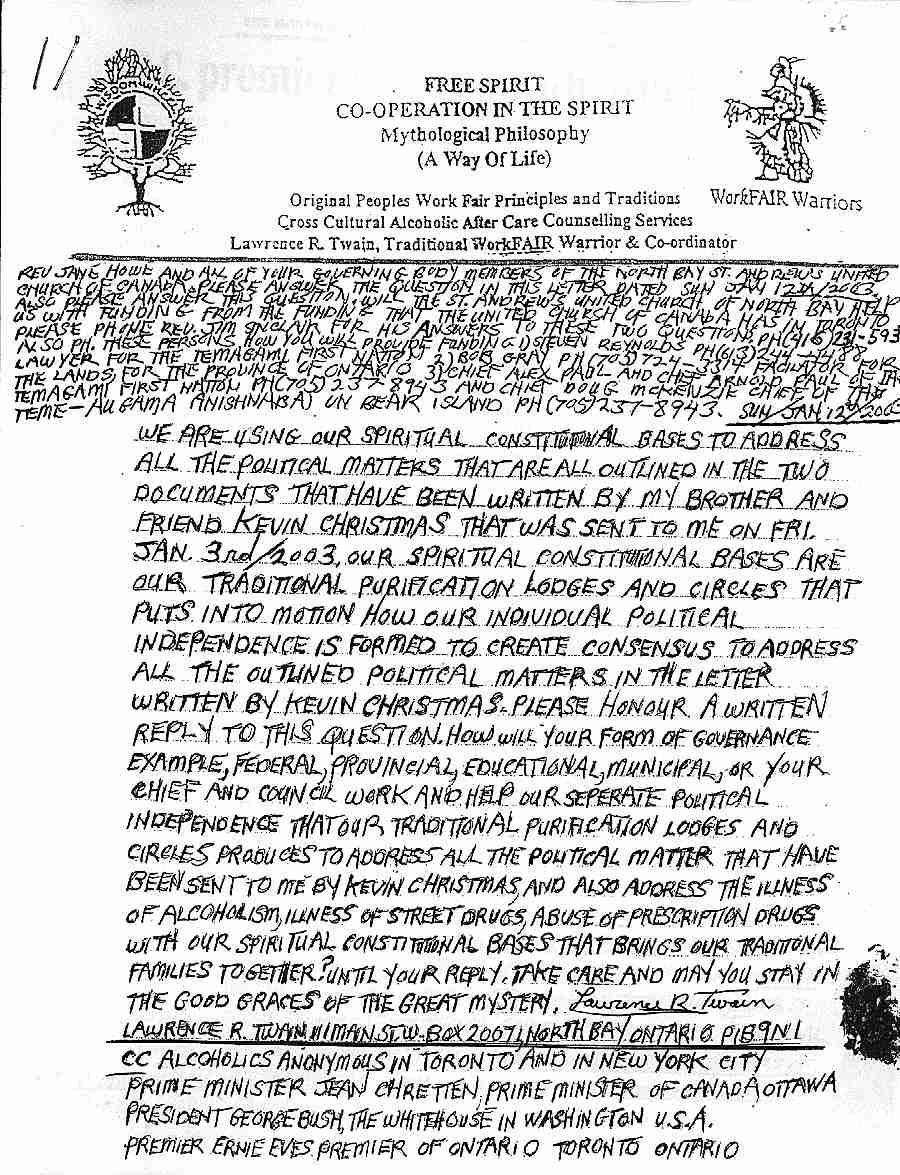 11
WISDOM WHEEL
FREE SPIRIT
CO-OPERATION IN THE SPIRIT
Mythological Philosophy
(A Way Of Life)
WorkFAIR Warriors
Original Peoples Work Fair Principles and Traditions
Cross Cultural Alcoholic After Care Counselling Services
Lawrence R. Twain, Traditional WorkFAIR Warrior & Co-ordinator
REV JANE HOWE AND ALL OF YOUR GOVERNING BODY MEMBERS OF THE NORTH BAY ST. ANDREW'S UNITED
CHURCH OF CANADA. PLEASE ANSWER THE QUESTION IN THIS LETTER DATED SUN JAN 12th/2003
ALSO PLEASE ANSWER THIS QUESTION. WILL THE ST. ANDREW'S UNITED CHURCH OF NORTH BAY HELP
US WITH FUNDING FROM THE FUNDING THAT THE UNITED CHURCH OF CANADA HAS IN TORONTO
PLEASE PHONE REV. JIM SINCLAIR FOR HIS ANSWERS TO THESE TWO QUESTIONS, PH(416) 231-593
ALSO PH. THESE PERSONS HOW YOU WILL PROVIDE FUNDING 1) STEVEN REYNOLDS PH(613) 244-1488
LAWYER FOR THE TEMAGAMI FIRST NATION 2) BOB GRAY PH (705) 724-3314 FACILATOR FOR
THE LANDS, FOR THE PROVINCE OF ONTARIO 3) CHIEF ALEX PAUL AND CHIEF ARNOLD PAUL OF THE
TEMAGAMI FIRST NATION PH(705) 237-8943 AND CHIEF DOUG MCKENZIE CHIEF OF THE
TEME-AUGAMA ANISHNABAI ON BEAR ISLAND PH (705) 237-8943. SUN/JAN 12th/2003
WE ARE USING OUR SPIRITUAL CONSTITUTIONAL BASES TO ADDRESS
ALL THE POLITICAL MATTERS THAT ARE ALL OUTLINED IN THE TWO
DOCUMENTS THAT HAVE BEEN WRITTEN BY MY BROTHER AND
FRIEND KEVIN CHRISTMAS THAT WAS SENT TO ME ON FRI.
JAN. 3rd/2003, OUR SPIRITUAL CONSTITUTIONAL BASES ARE
OUR TRADITIONAL PURIFICATION LODGES AND CIRCLES THAT
PUTS INTO MOTION HOW OUR INDIVIDUAL POLITICAL
INDEPENDENCE IS FORMED TO CREATE CONSENSUS TO ADDRESS
ALL THE OUTLINED POLITICAL MATTERS IN THE LETTER
WRITTEN BY KEVIN CHRISTMAS. PLEASE HONOUR A WRITTEN
REPLY TO THIS QUESTION. HOW WILL YOUR FORM OF GOVERNANCE
EXAMPLE, FEDERAL, PROVINCIAL, EDUCATIONAL, MUNICIPAL, OR YOUR
CHIEF AND COUNCIL WORK AND HELP OUR SEPERATE POLITICAL
INDEPENDENCE THAT OUR TRADITIONAL PURIFICATION LODGES AND
CIRCLES PRODUCES TO ADDRESS ALL THE POLITICAL MATTER THAT HAVE
BEEN SENT TO ME BY KEVIN CHRISTMAS, AND ALSO ADDRESS THE ILLNESS
OF ALCOHOLISM, ILLNESS OF STREET DRUGS, ABUSE OF PRESCRIPTION DRUGS
WITH OUR SPIRITUAL CONSTITUTIONAL BASES THAT BRINGS OUR TRADITIONAL
FAMILIES TOGETHER? UNTIL YOUR REPLY. TAKE CARE AND MAY YOU STAY IN
THE GOOD GRACES OF THE GREAT MYSTERY. Lawrence R. Twain
LAWRENCE R. TWAIN 111 MAN ST. W. BOX 20071, NORTH BAY ONTARIO P1B 9N1
CC ALCOHOLICS ANONYMOUS IN TORONTO AND IN NEW YORK CITY
PRIME MINISTER JEAN CHRETIEN, PRIME MINISTER OF CANADA OTTAWA
PRESIDENT GEORGE BUSH, THE WHITEHOUSE IN WASHINGTON U.S.A.
PREMIER ERNIE EVES PREMIER OF ONTARIO TORONTO ONTARIO